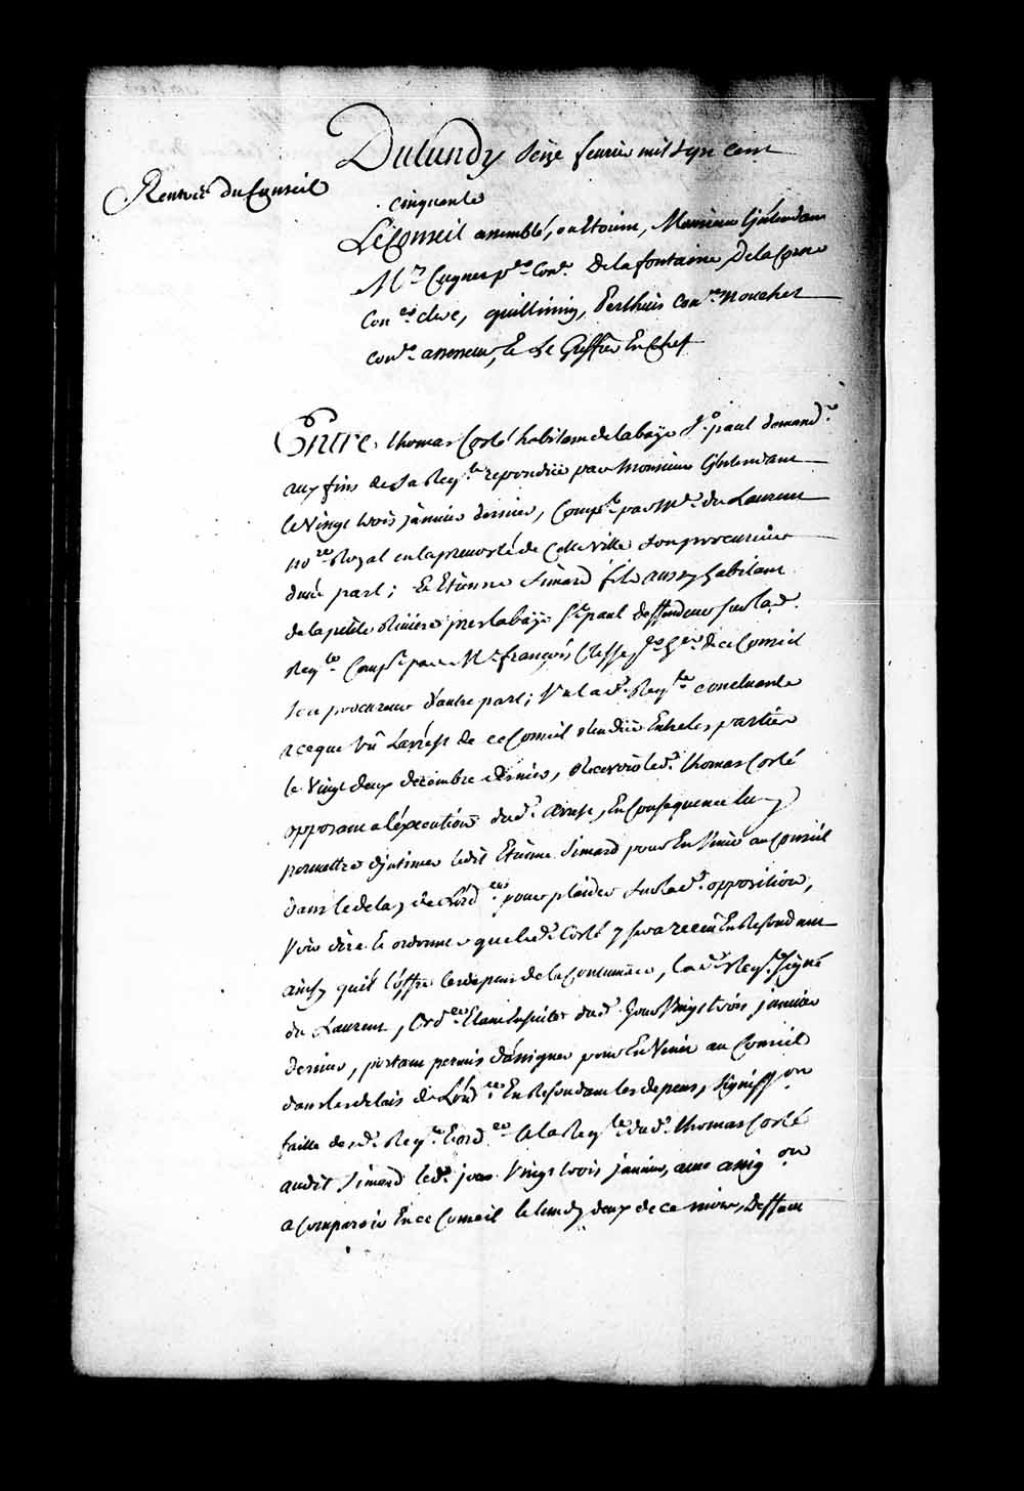 Du lundy seize fevrier mil sept cent
Rentrée du Conseil
cinquante
Le Conseil assemblé, ou etoient, Monsieur l'jntendant
Mrs Cugnet per Coner. De lafontaine, De la Corne
Coner clerc, guillimin, Perthuis Coners. nouchet
coner. assesseur, Et Le Greffier En Chef
Entre thomas Corté habitant de la baye St. paul demandr.
aux fins de sa Reqte. repondüe par Monsieur l'jntendant
le Vingt trois janvier dernier, Compt. par Me. du Laurent
nore Royal en la prevosté de Cette Ville son procureur
d'une part; Et Etienne Simard fils aussy habitant
de la petite Riviere pres la baye St. paul deffendeur sur lad.
Reqte. Compt. par Me. françois Clesse, pr. Gen. de ce Conseil
son procureur d'autre part; Vu la de. Reqte. concluante
a ce que Vû L'arrest de ce Conseil rendüe Entre les parties
le Vingt deux decembre dernier, recevoir led. thomas Corté
opposant a l'éxecution dud. arrest, En Consequence luy
permettre d'jntimer ledit Etienne Simard pour En Venir au Conseil
dans le delay de L'ordce. pour plaider sur lad. opposition,
Voir dire Et ordonner que led. Corté y sera receü En Refondant
ainsy qu'il l'offre les depens de la Contumace, lad. Reqte. signé
du Laurent, l'ordce. Etant Ensuite dud. jour Vingt trois janvier
dernier, portant permis d'assigner pour En Venir au Conseil
dans les delais de L'ordce. En Refondant les depens, Signiffon.
faitte desd. Reqte. Et ordce. a la Reqte. dud. thomas Corté
audit Simard led. jour Vingt trois janvier, avec assigon.
a Comparoir En ce Conseil le lundy deux de ce mois, Deffaut